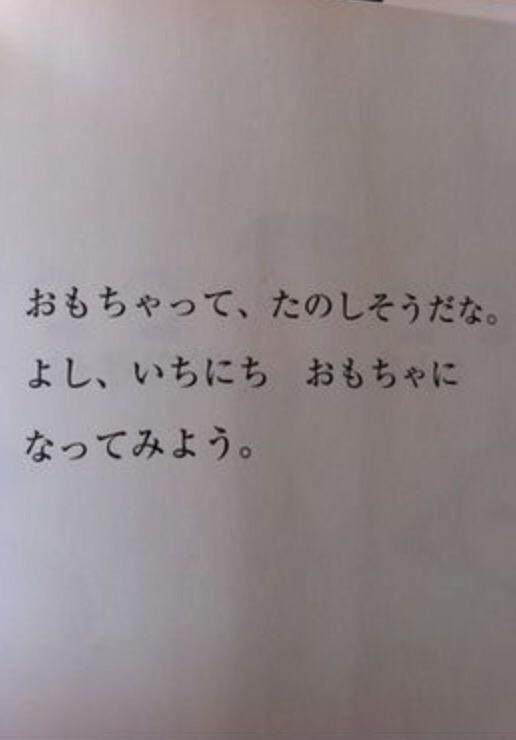 おもちゃって、たのしそうだな。
よし、いちにち　おもちゃに
なってみよう。